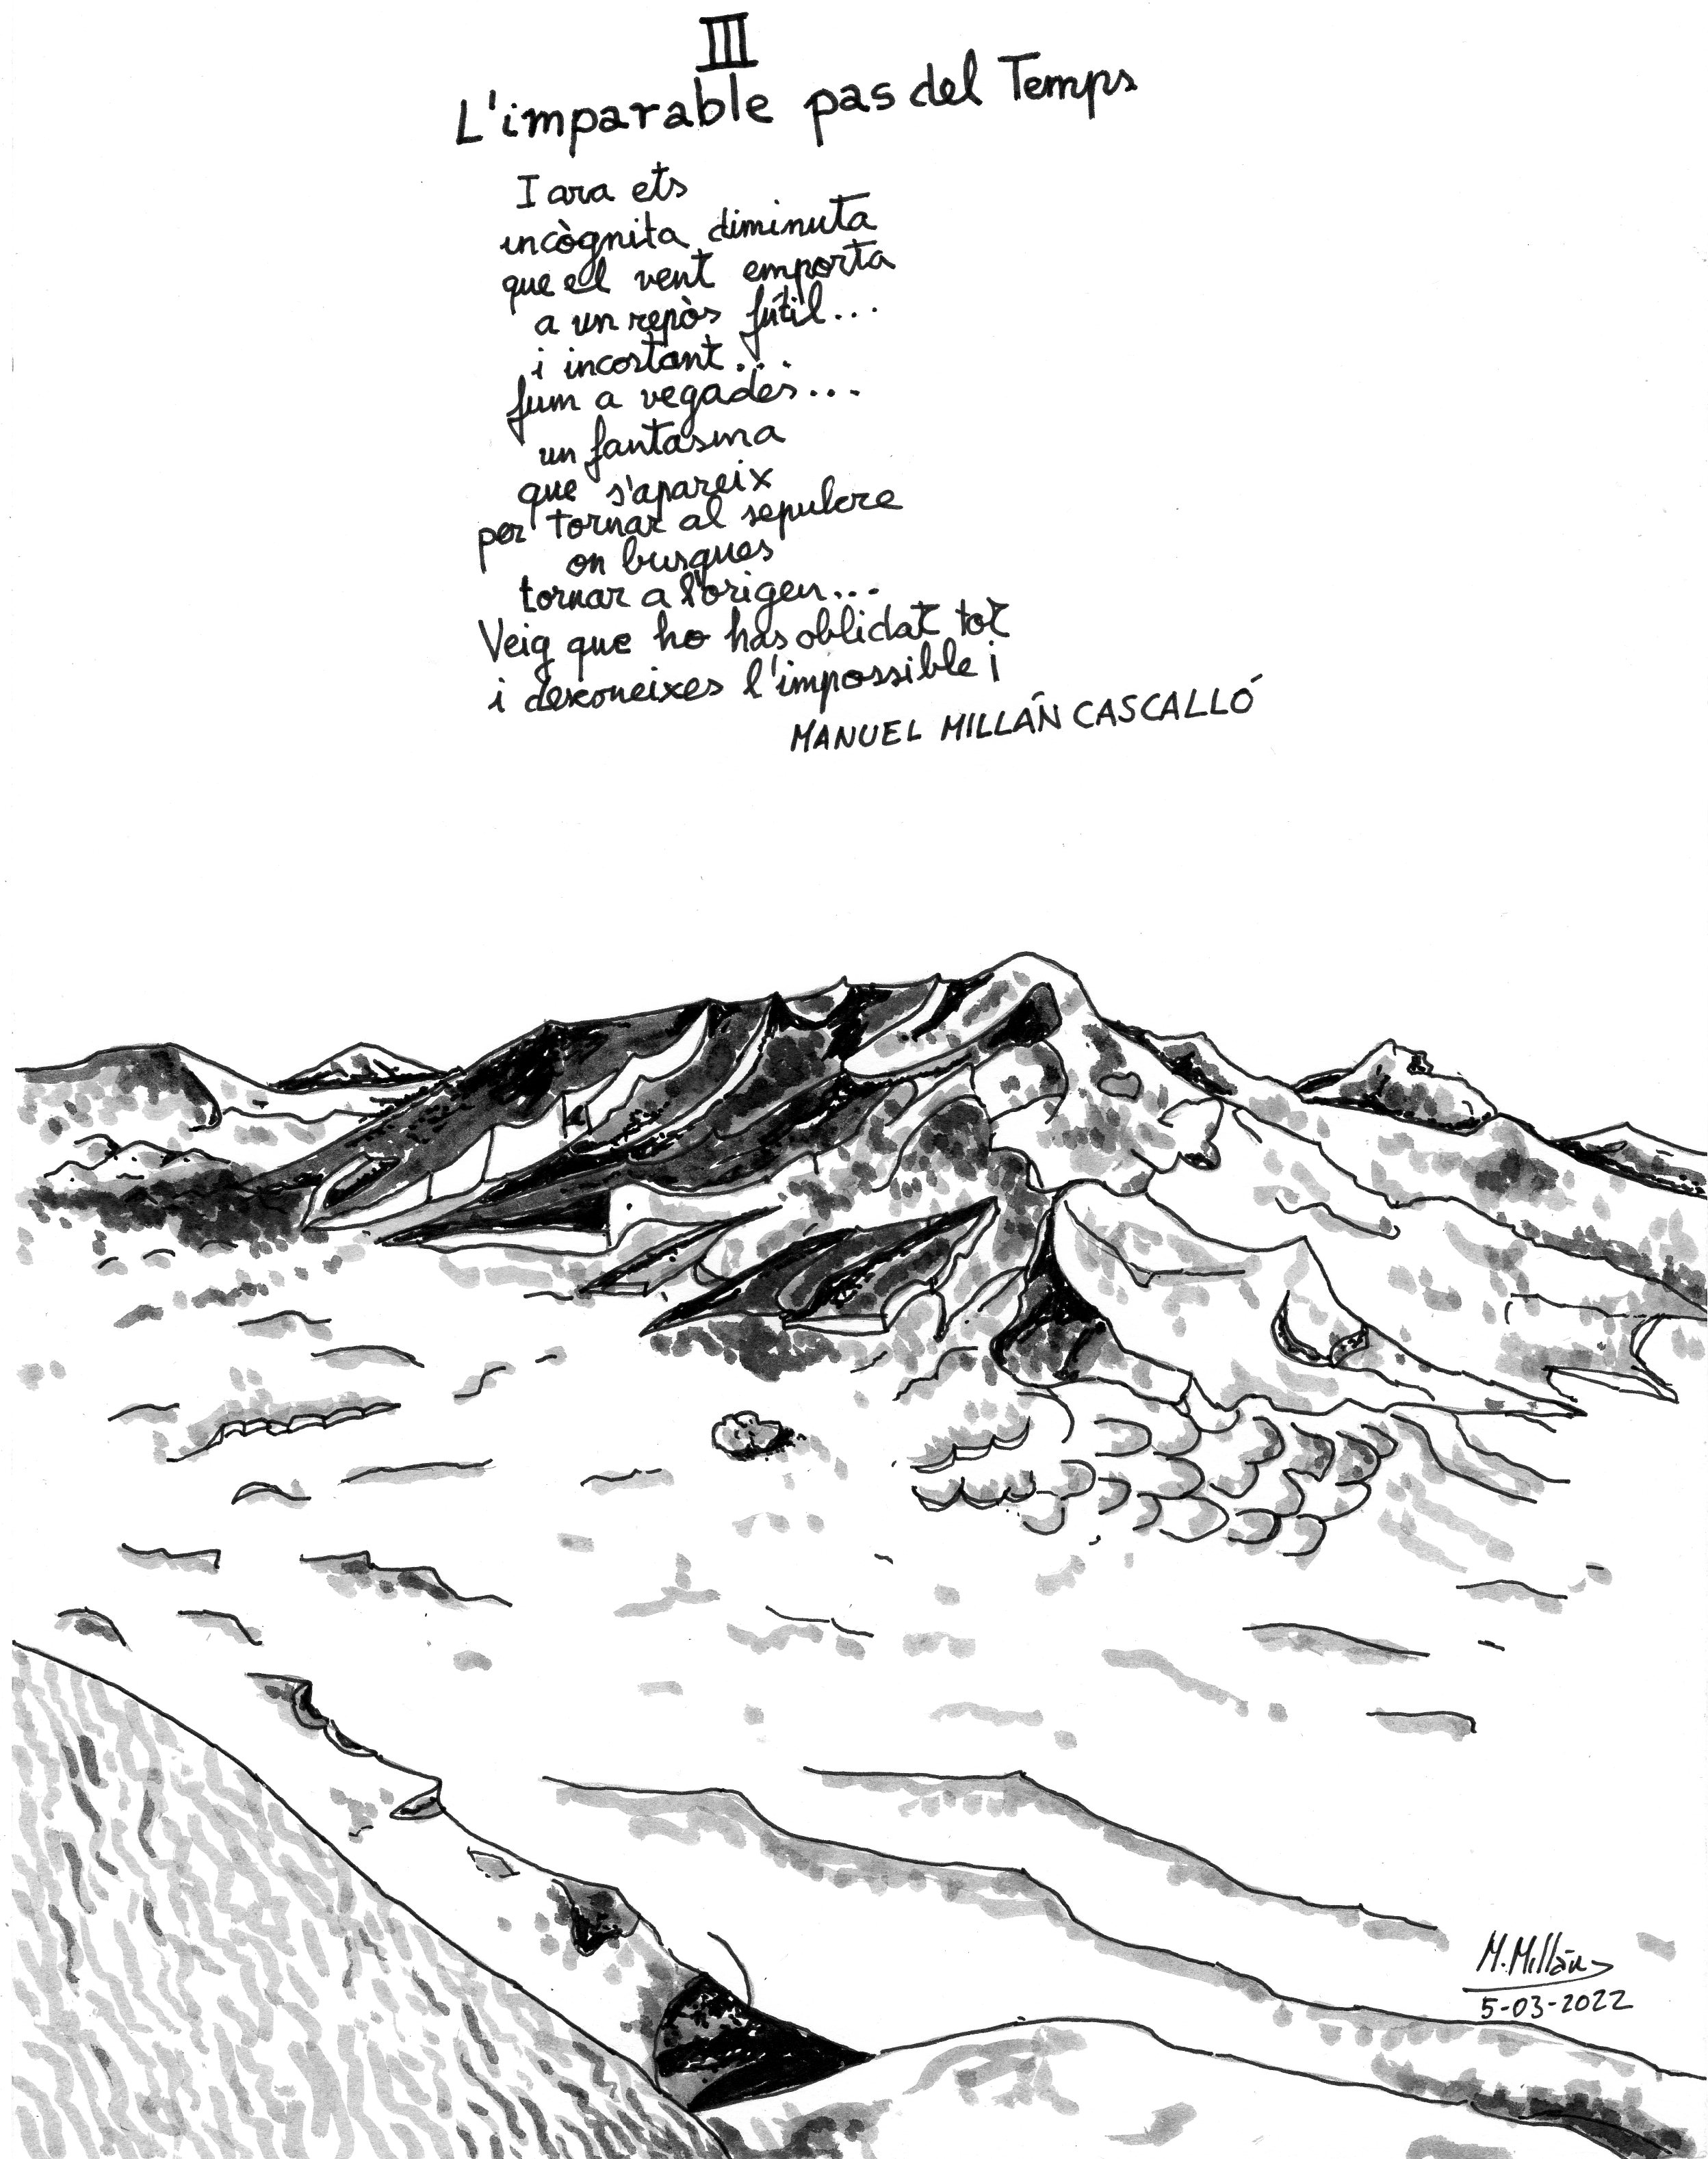 III
L'imparable pas del Temps
I ara ets
incògnita diminuta
que el vent emporta
a un repòs fútil...
i incostant...
fum a vegades...
un fantasma
que s'apareix
per tornar al sepulcre
on busques
tornar a l'origen...
Veig que ho has oblidat tot
i desconeixes l'impossible¡
MANUEL MILLÁN CASCALLÓ
M. Millán
5-03-2022